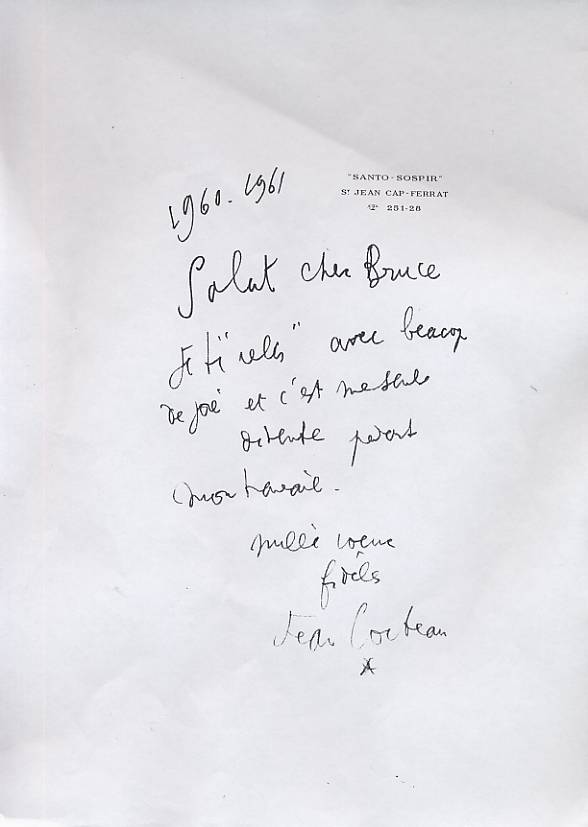 1960-1961
"SANTO-SOSPIR"
St JEAN CAP-FERRAT
251-26
Salut cher Bruce
Je t'"relis" avec beaucop
de joie et c'est ma seule
détente pendant
mon travail.
mille voeux
fidèls
Jean Cocteau